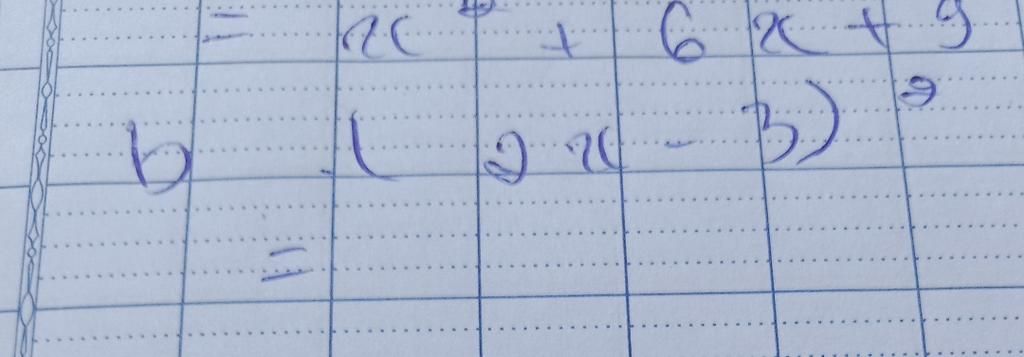 = x² + 6x + 9
b. (2x - 3)²
=